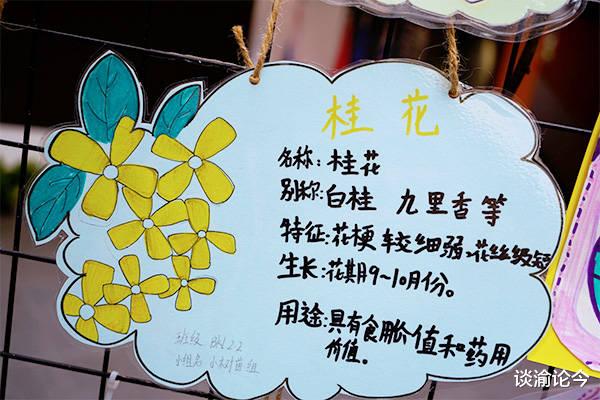 桂花
名称:桂花
别称:白桂 九里香等
特征:花梗较细弱,花丝级短
生长:花期9~10月份。
用途:具有食用价值和药用
价值。
班级
小组名 小树苗组
谈渝论今